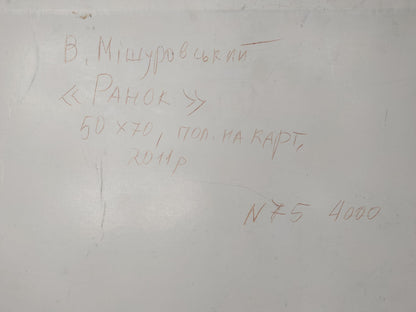 В. Мішуровський
« РАНОК »
50 х 70, пол. на карт,
2011р
N 75 4000